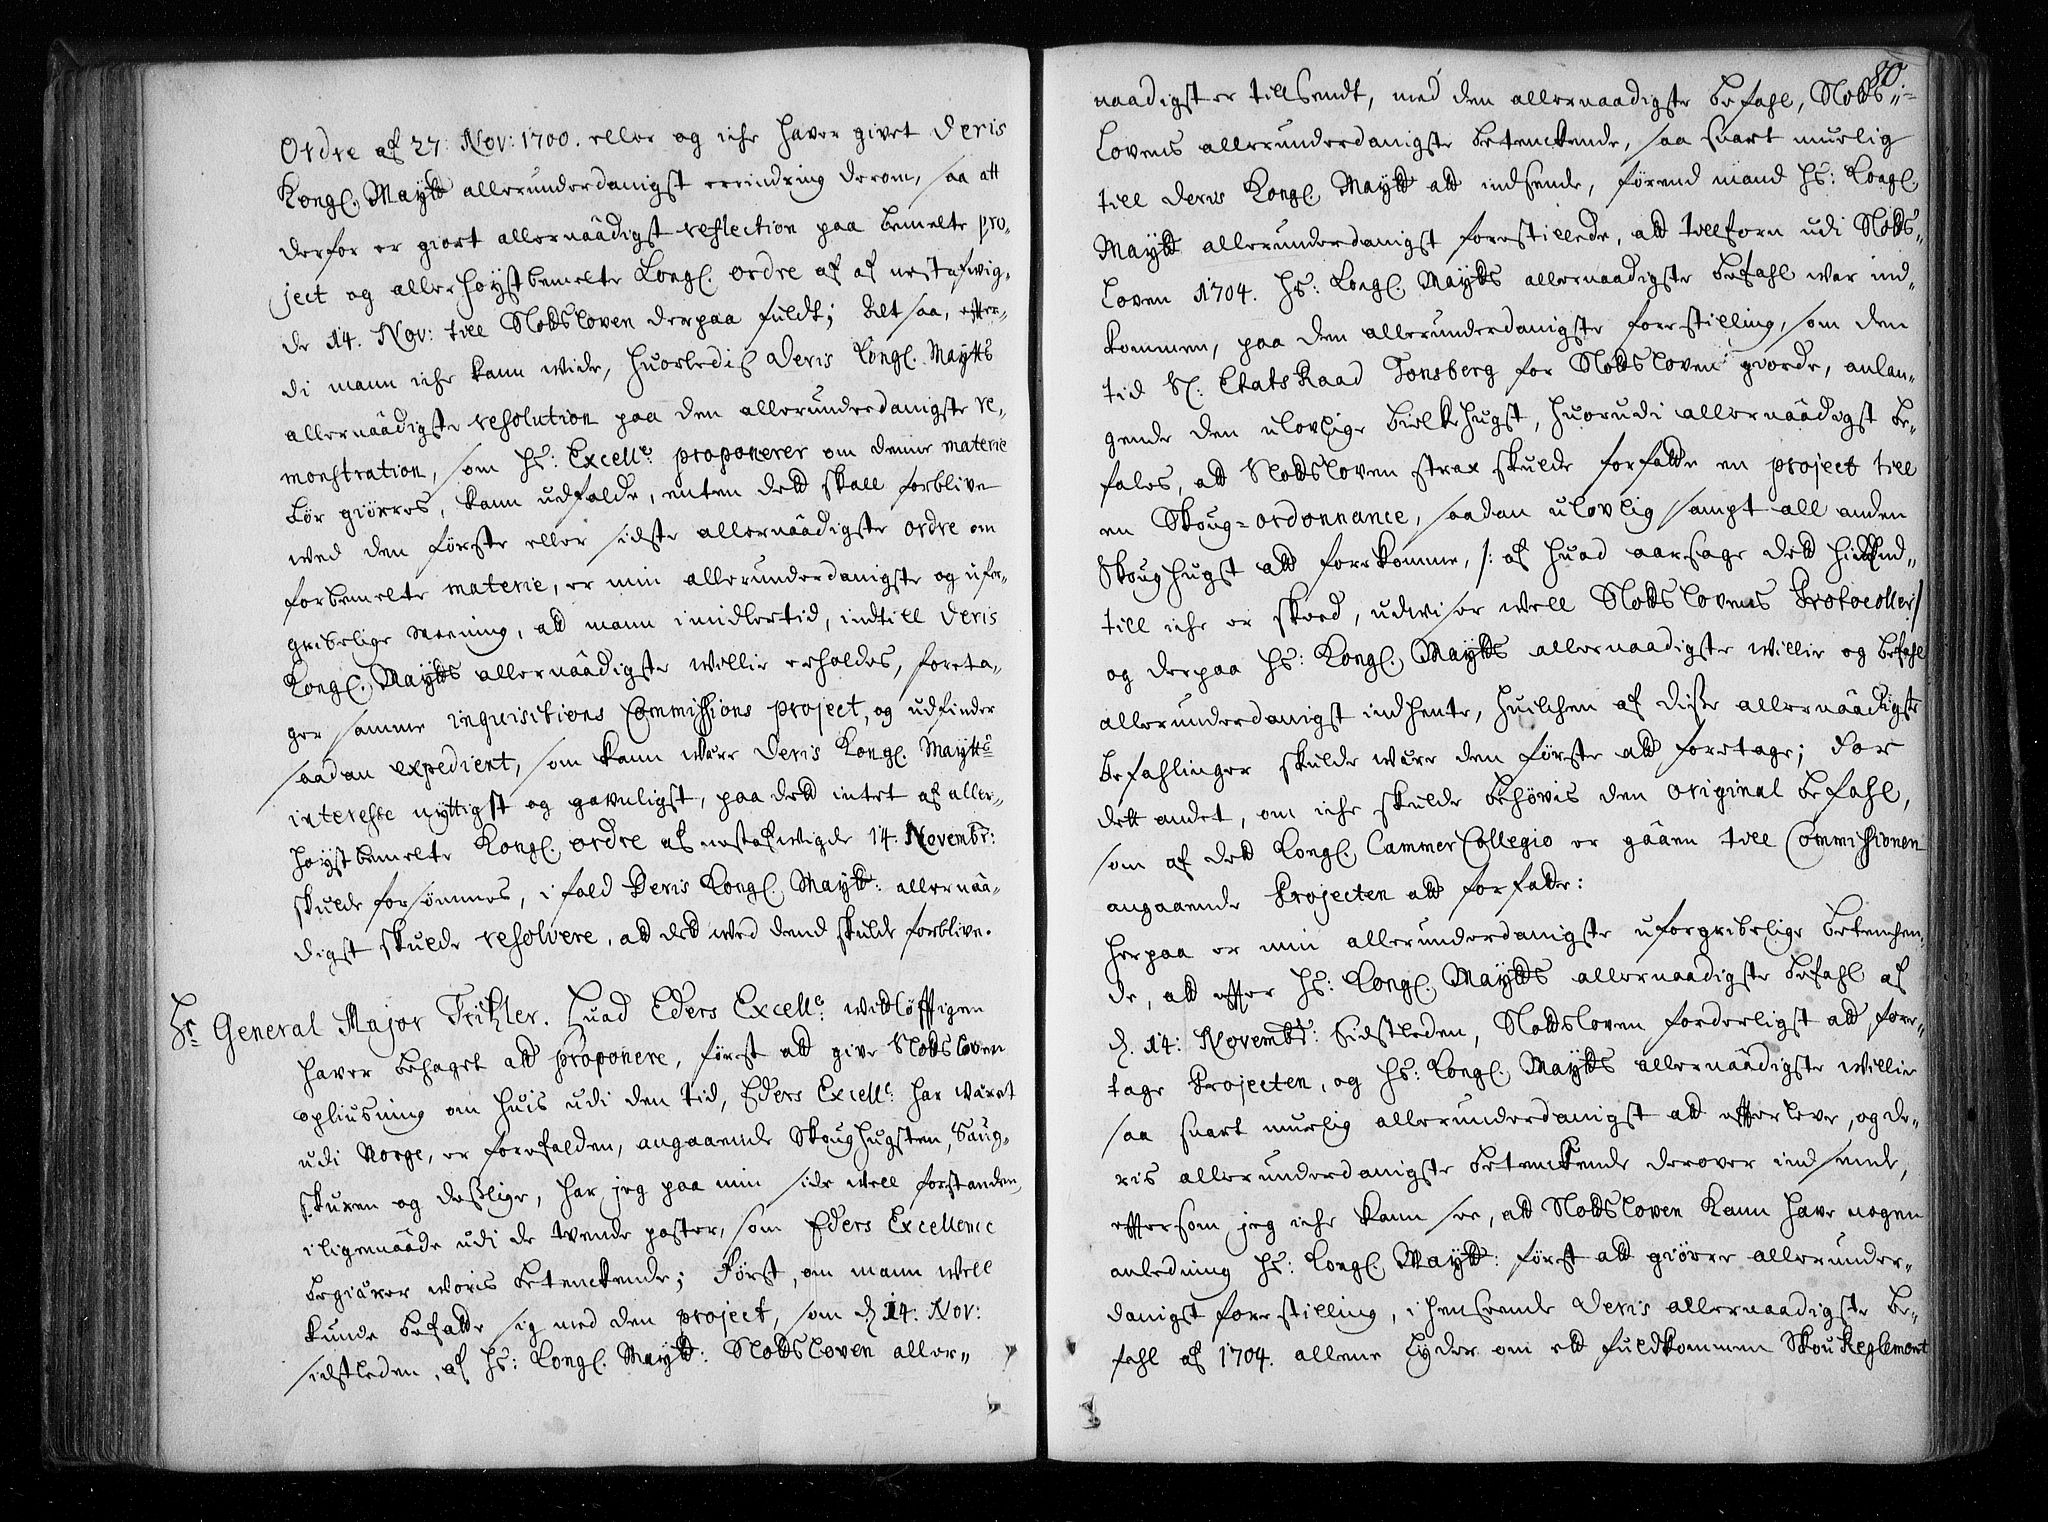 Ordre af 27. Nov: 1700. eller og iche haver givet Deris
Kongl. Maytt allerunderdanigst erindring derom, saa att
derfor er giort allernaadigst reflection paa bemelte pro-
ject og allerhøystbemelte Kongl. ordre af af nestafvig-
de 14. Nov: till Slottsloven derpaa fuldt; Alt saa, effter-
di mann iche kann wide, huorledis Deris Kongl. Maytts
allernaadigste resolution paa den allerunderdanigste re-
monstration, som Hs: Excellce proponerer om denne materie
bør giørres, kann udfalde, enten dett skall forblive
wed den første eller sidste allernaadigste ordre om
forbemelte materie, er min allerunderdanigste og ufor-
gribelige Meening, att mann imidlertid, indtill Deris
Kongl. Maytts allernaadigste willie erholdes, foreta-
ger samme inquisitions Commissions project, og udfinder
saadan expedient, som kann wære Deris Kongl. Maytts
interesse nyttigst og gavnligst, paa dett intet af aller-
høystbemelte Kongl. ordre af nestafvigde 14. Novembr:
skulde forsømmes, i fald Deris Kongl. Maytt: allernaa-
digst skulde resolvere, att det wed dend skulde forblive.
Hr General Major Tritzler. Huad Eders Excellce witløfftigen
haver behaget att proponere, først att give Slottsloven
opliusning om huis udi den tid, Eders Excellce har wæret
udi Norge, er forefalden, angaaende Skoughugsten, Saug-
skuren og desslige, har jeg paa min side well forstanden,
iligemaade udi de tvende poster, som Eders Excellence
begiærer woris betenckende; Først, om mann well
kunde befatte sig med den project, som d. 14. Nov:
sidstleden, af Hs: Kongl. Maytt: Slottsloven aller-
80.
naadigst er tillsendt, med den allernaadigste befahl, Slotts-
Lovens allerunderdanigste betenckende, saa snart muelig
till Deris Kongl. Maytt att indsende, førend mand Hs: Kongl.
Maytt allerunderdanigst forestillede, att tillforn udi Slotts-
Loven 1704. Hs: Kongl. Maytts allernaadigste befahl war ind-
kommen, paa den allerunderdanigste forestilling, som den
tid Sl. Etats Raad Tonsberg for Slottsloven giorde, anlan-
gende den ulovlige bielkehugst, huorudi allernaadigst be-
fales, att Slottsloven strax skulde forfatte en project till
en Skoug-ordonnance, saadan ulovlig sampt all anden
Skoughugst att forekomme, /: af huad aarsage dett hidind-
till iche er skeed, udwiser well Slottslovens Protocoller/
og derpaa Hs: Kongl. Maytts allernaadigste willie og befahl
allerunderdanigst indhente, huilchen af disse allernaadigste
befahlinger skulde wære den første att foretage; For
dett andet, om iche skulde behøvis den original befahl,
som af dett Kongl. Cammer Collegio er gaaen till Commissionen
angaaende Projecten att forfatte:
Herpaa er min allerunderdanigste uforgribelige betenchen-
de, att effter Hs: Kongl. Maytts allernaadigste befahl af
d. 14. Novembr: Sidstleden, Slottsloven forderligst att fore-
tage Projecten, og Hs: Kongl. Maytts allernaadigste willie
saa snart muelig allerunderdanigst att effterleve, og de-
ris allerunderdanigste betenckende derover indsende,
effter som jeg iche kann see, att Slottsloven kann have nogen
anledning Hs: Kongl. Maytt: først att giørre allerunder-
danigst forestilling, ihenseende Deris allernaadigste be-
fahl af 1704. allene lyder om ett fuldkommen Skou Reglement